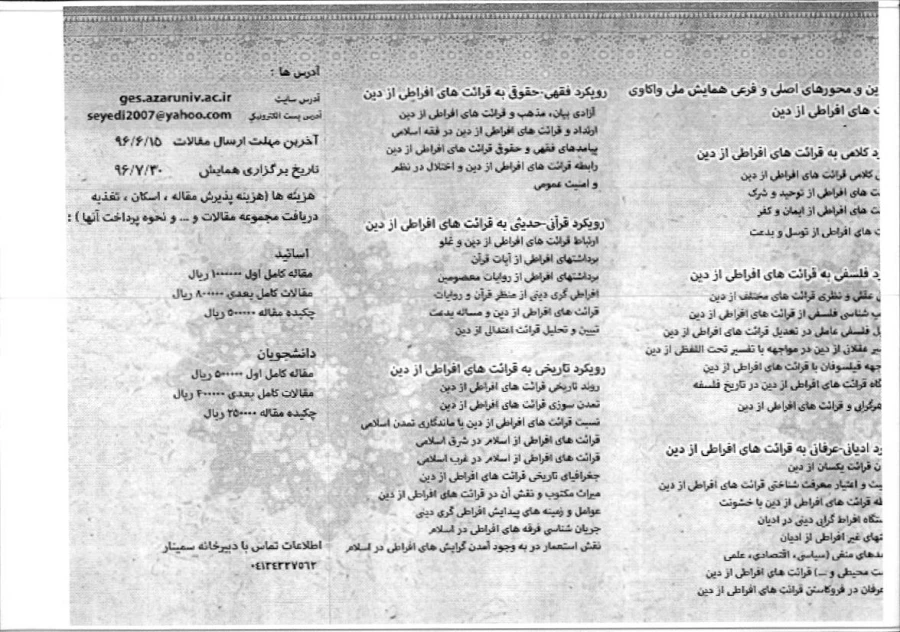 ین و محورهای اصلی و فرعی همایش ملی واکاوی
ت های افراطی از دین
د کلامی به قرائت های افراطی از دین
کلامی قرائت های افراطی از دین
ت های افراطی از توحید و شرک
ت های افراطی از ایمان و کفر
ت های افراطی از توسل و بدعت
د فلسفی به قرائت های افراطی از دین
عقلی و نظری قرائت های مختلف از دین
ب شناسی فلسفی از قرائت های افراطی از دین
ل فلسفی عاملی در تعدیل قرائت های افراطی از دین
یر عقلانی از دین در مواجهه با تفسیر تحت اللفظی از دین
جهه فیلسوفان با قرائت های افراطی از دین
گاه قرائت های افراطی از دین در تاریخ فلسفه
هرگرایی و قرائت های افراطی از دین
د ادیانی-عرفانی به قرائت های افراطی از دین
ن قرائت یکسان از دین
یت و اعتبار معرفت شناختی قرائت های افراطی از دین
طه قرائت های افراطی از دین با خشونت
ستگاه افراط گرایی دینی در ادیان
تهای غیر افراطی از ادیان
مدهای منفی (سیاسی، اقتصادی، علمی
ست محیطی و ...) قرائت های افراطی از دین
عرفان در فروکاستن قرائت های افراطی از دین
رویکرد فقهی-حقوقی به قرائت های افراطی از دین
آزادی بیان، مذهب و قرائت های افراطی از دین
ارتداد و قرائت های افراطی از دین در فقه اسلامی
پیامدهای فقهی و حقوقی قرائت های افراطی از دین
رابطه قرائت های افراطی از دین و اختلال در نظم
و امنیت عمومی
رویکرد قرآنی-حدیثی به قرائت های افراطی از دین
ارتباط قرائت های افراطی از دین و غلو
برداشتهای افراطی از آیات قرآن
برداشتهای افراطی از روایات معصومین
افراطی گری دینی از منظر قرآن و روایات
قرائت های افراطی از دین و مساله بدعت
تبیین و تحلیل قرائت اعتدالی از دین
رویکرد تاریخی به قرائت های افراطی از دین
روند تاریخی قرائت های افراطی از دین
تمدن سوزی قرائت های افراطی از دین
نسبت قرائت های افراطی از دین با ماندگاری تمدن اسلامی
قرائت های افراطی از اسلام در شرق اسلامی
قرائت های افراطی از اسلام در غرب اسلامی
جغرافیای تاریخی قرائت های افراطی از دین
میراث مکتوب و نقش آن در قرائت های افراطی از دین
عوامل و زمینه های پیدایش افراطی گری دینی
جریان شناسی فرقه های افراطی در اسلام
نقش استعمار در به وجود آمدن گرایش های افراطی در اسلام
آدرس ها :
آدرس سایت ges.azaruniv.ac.ir
آدرس پست الکترونیکی seyedi2007@yahoo.com
آخرین مهلت ارسال مقالات ۹۶/۶/۱۵
تاریخ برگزاری همایش ۹۶/۷/۳۰
هزینه ها (هزینه پذیرش مقاله ، اسکان ، تغذیه
دریافت مجموعه مقالات و ... و نحوه پرداخت آنها ) :
اساتید
مقاله کامل اول ۱۰۰۰۰۰۰ ریال
مقالات کامل بعدی ۸۰۰۰۰۰ ریال
چکیده مقاله ۵۰۰۰۰۰ ریال
دانشجویان
مقاله کامل اول ۵۰۰۰۰۰ ریال
مقالات کامل بعدی ۴۰۰۰۰۰ ریال
چکیده مقاله ۲۵۰۰۰۰ ریال
اطلاعات تماس با دبیرخانه سمینار
۰۴۱۳۴۳۲۷۵۶۲